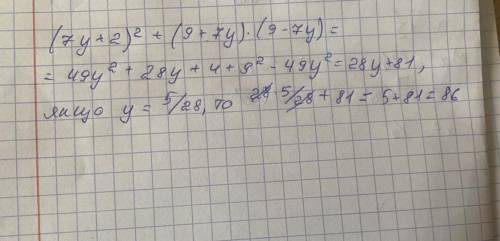 (7y+2)² + (9+7y)·(9-7y)=
= 49y² + 28y + 4 + 9² - 49y² = 28y+81,
якщо y = 5/28, то 28 5/28 + 81 = 5+81 = 86